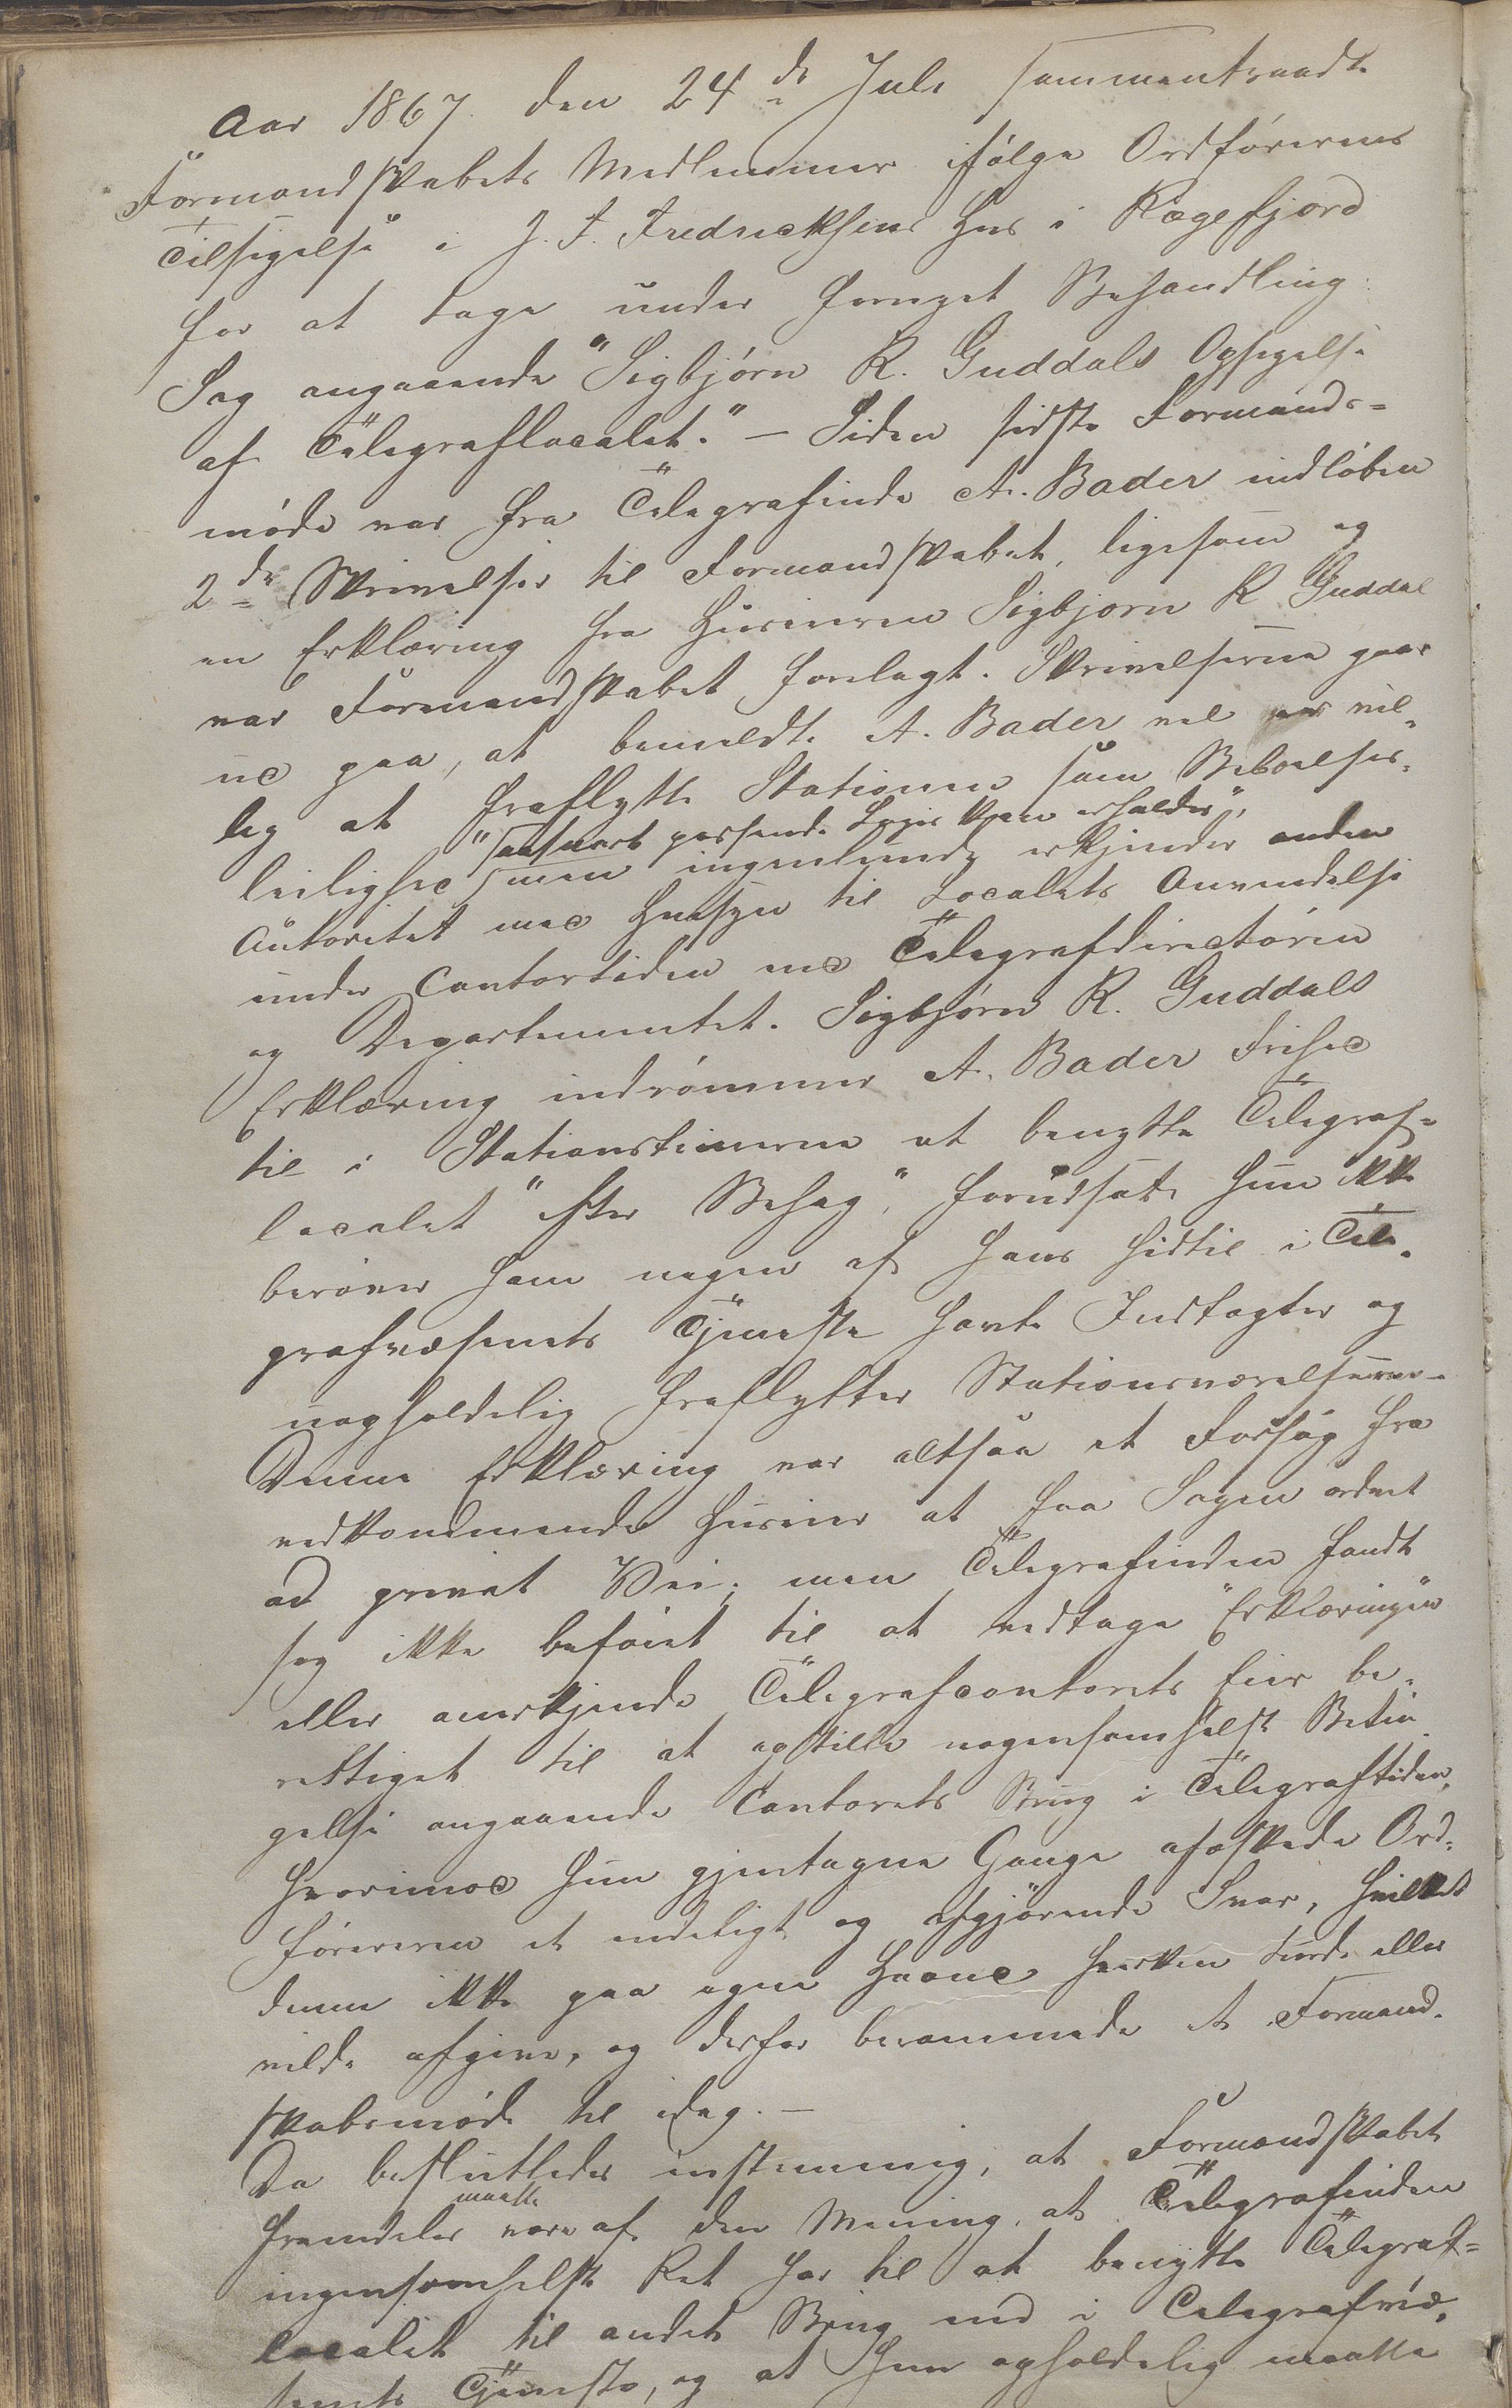 Aar 1867 den 24de Juli sammentraadte
Formandskabets Medlemmer ifølge Ordførerens
Tilsigelse i J. F. Fredricksens Hus i Rægefjord
for at tage under fornyet Behandling:
Sag angaaende "Sigbjørn R. Guddals Opsigelse
af Telegraflocalet." - Siden sidste Formands-
møde var fra Telegrafinde A. Bader indløben
2de Skrivelser til Formandskabet, ligesom og
en Erklæring fra Huseieren Sigbjørn R Guddal
var Formandskabet forelagt. Skrivelserne gaar
ud paa, at bemeldte A. Bader vel er vil-
lig at fraflytte Stationen som Beboelses-
"saasnart passende Logis kan erholdes",
leilighed men ingenlunde erkjender anden
Autoritet med Hensyn til Localets Anvendelse
under Contortiden end Telegrafdirectøren
og Departementet. Sigbjørn R. Guddals
Erklæring indrømmer A. Bader Frihed
til i Stationstimerne at benytte Telegraf-
localet "efter Behag", forudsat hun ikke
berøver ham nogen af hans hidtil i Tele-
grafvæsenets Tjeneste havte Indtægter og
uopholdelig fraflytter Stationsværelserne.
Denne Erklæring var altsaa et Forsøg fra
vedkommende Huseier at faa Sagen ordnet
ad privat Vei; men Telegrafinden fandt
sig ikke beføiet til at vedtage "Erklæringen"
eller anerkjende Telegrafcontorets Eier be-
rettiget til at opstille nogensomhelst Betin-
gelse angaaende Contorets Brug i Telegraftiden,
hvorimod hun gjentagne Gange afæskede Ord-
føreren et endeligt og afgjørende Svar, hvilket
denne ikke paa egen Haand hverken turde eller
vilde afgive, og derfor berammede et Formand-
skabsmøde til idag. -
Da besluttedes enstemmig, at Formandskabet
maatte
fremdeles være af den Mening, at Telegrafinden
ingensomhelst Ret har til at benytte Telegraf-
localet til andet Brug end i Telegrafvæ-
senets Tjeneste, og at hun opholdelig maatte